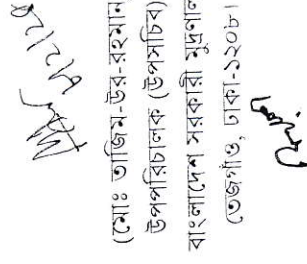 (মোঃ তাজিম-উর-রহমান)
উপপরিচালক (উপসচিব)
বাংলাদেশ সরকারী মুদ্রণাল
(তেজগাঁও, ঢাকা-১২০৮।